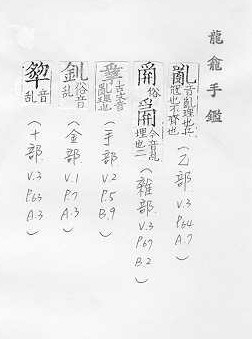 龍龕手鑑
亂 音亂理也兵寇也不齊也
(乙部 V.3 P.64 A.7)
𤔔 俗 𤔔 今音亂理也二
(雜部 V.3 P.67 B.2)
古文音亂理也
(手部 V.2 P.5 B.9)
釠 俗音亂
(金部 V.1 P.7 A.3)
音亂
(十部 V.3 P.63 A.3)